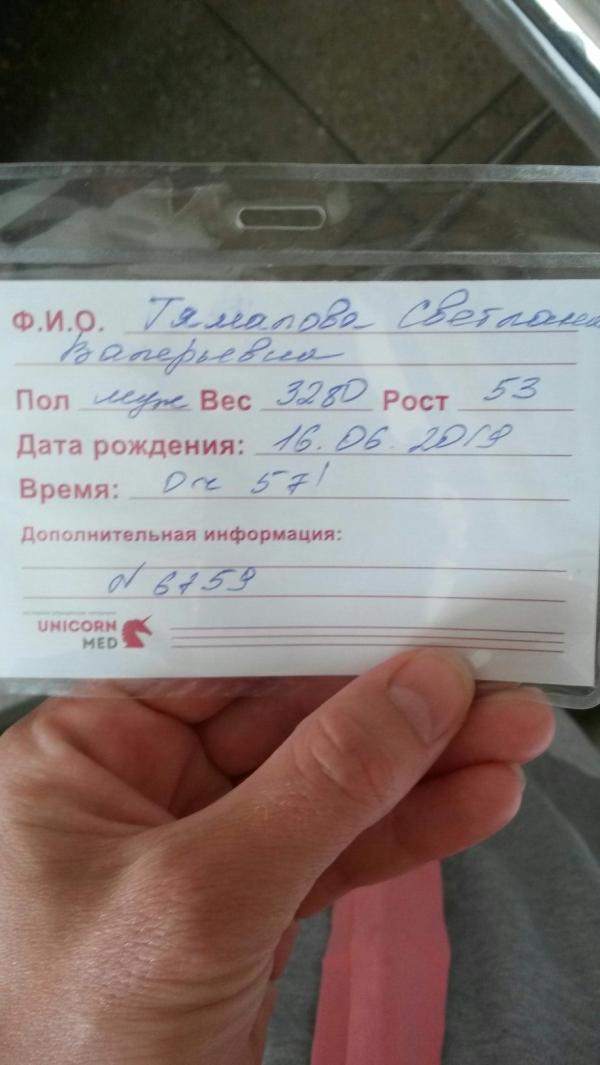 Ф.И.О. Тямалова Светлана
Валерьевна
Пол муж Вес 3280 Рост 53
Дата рождения: 16.06.2019
Время: 0ч 57'
Дополнительная информация:
N 6759
UNICORN
MED